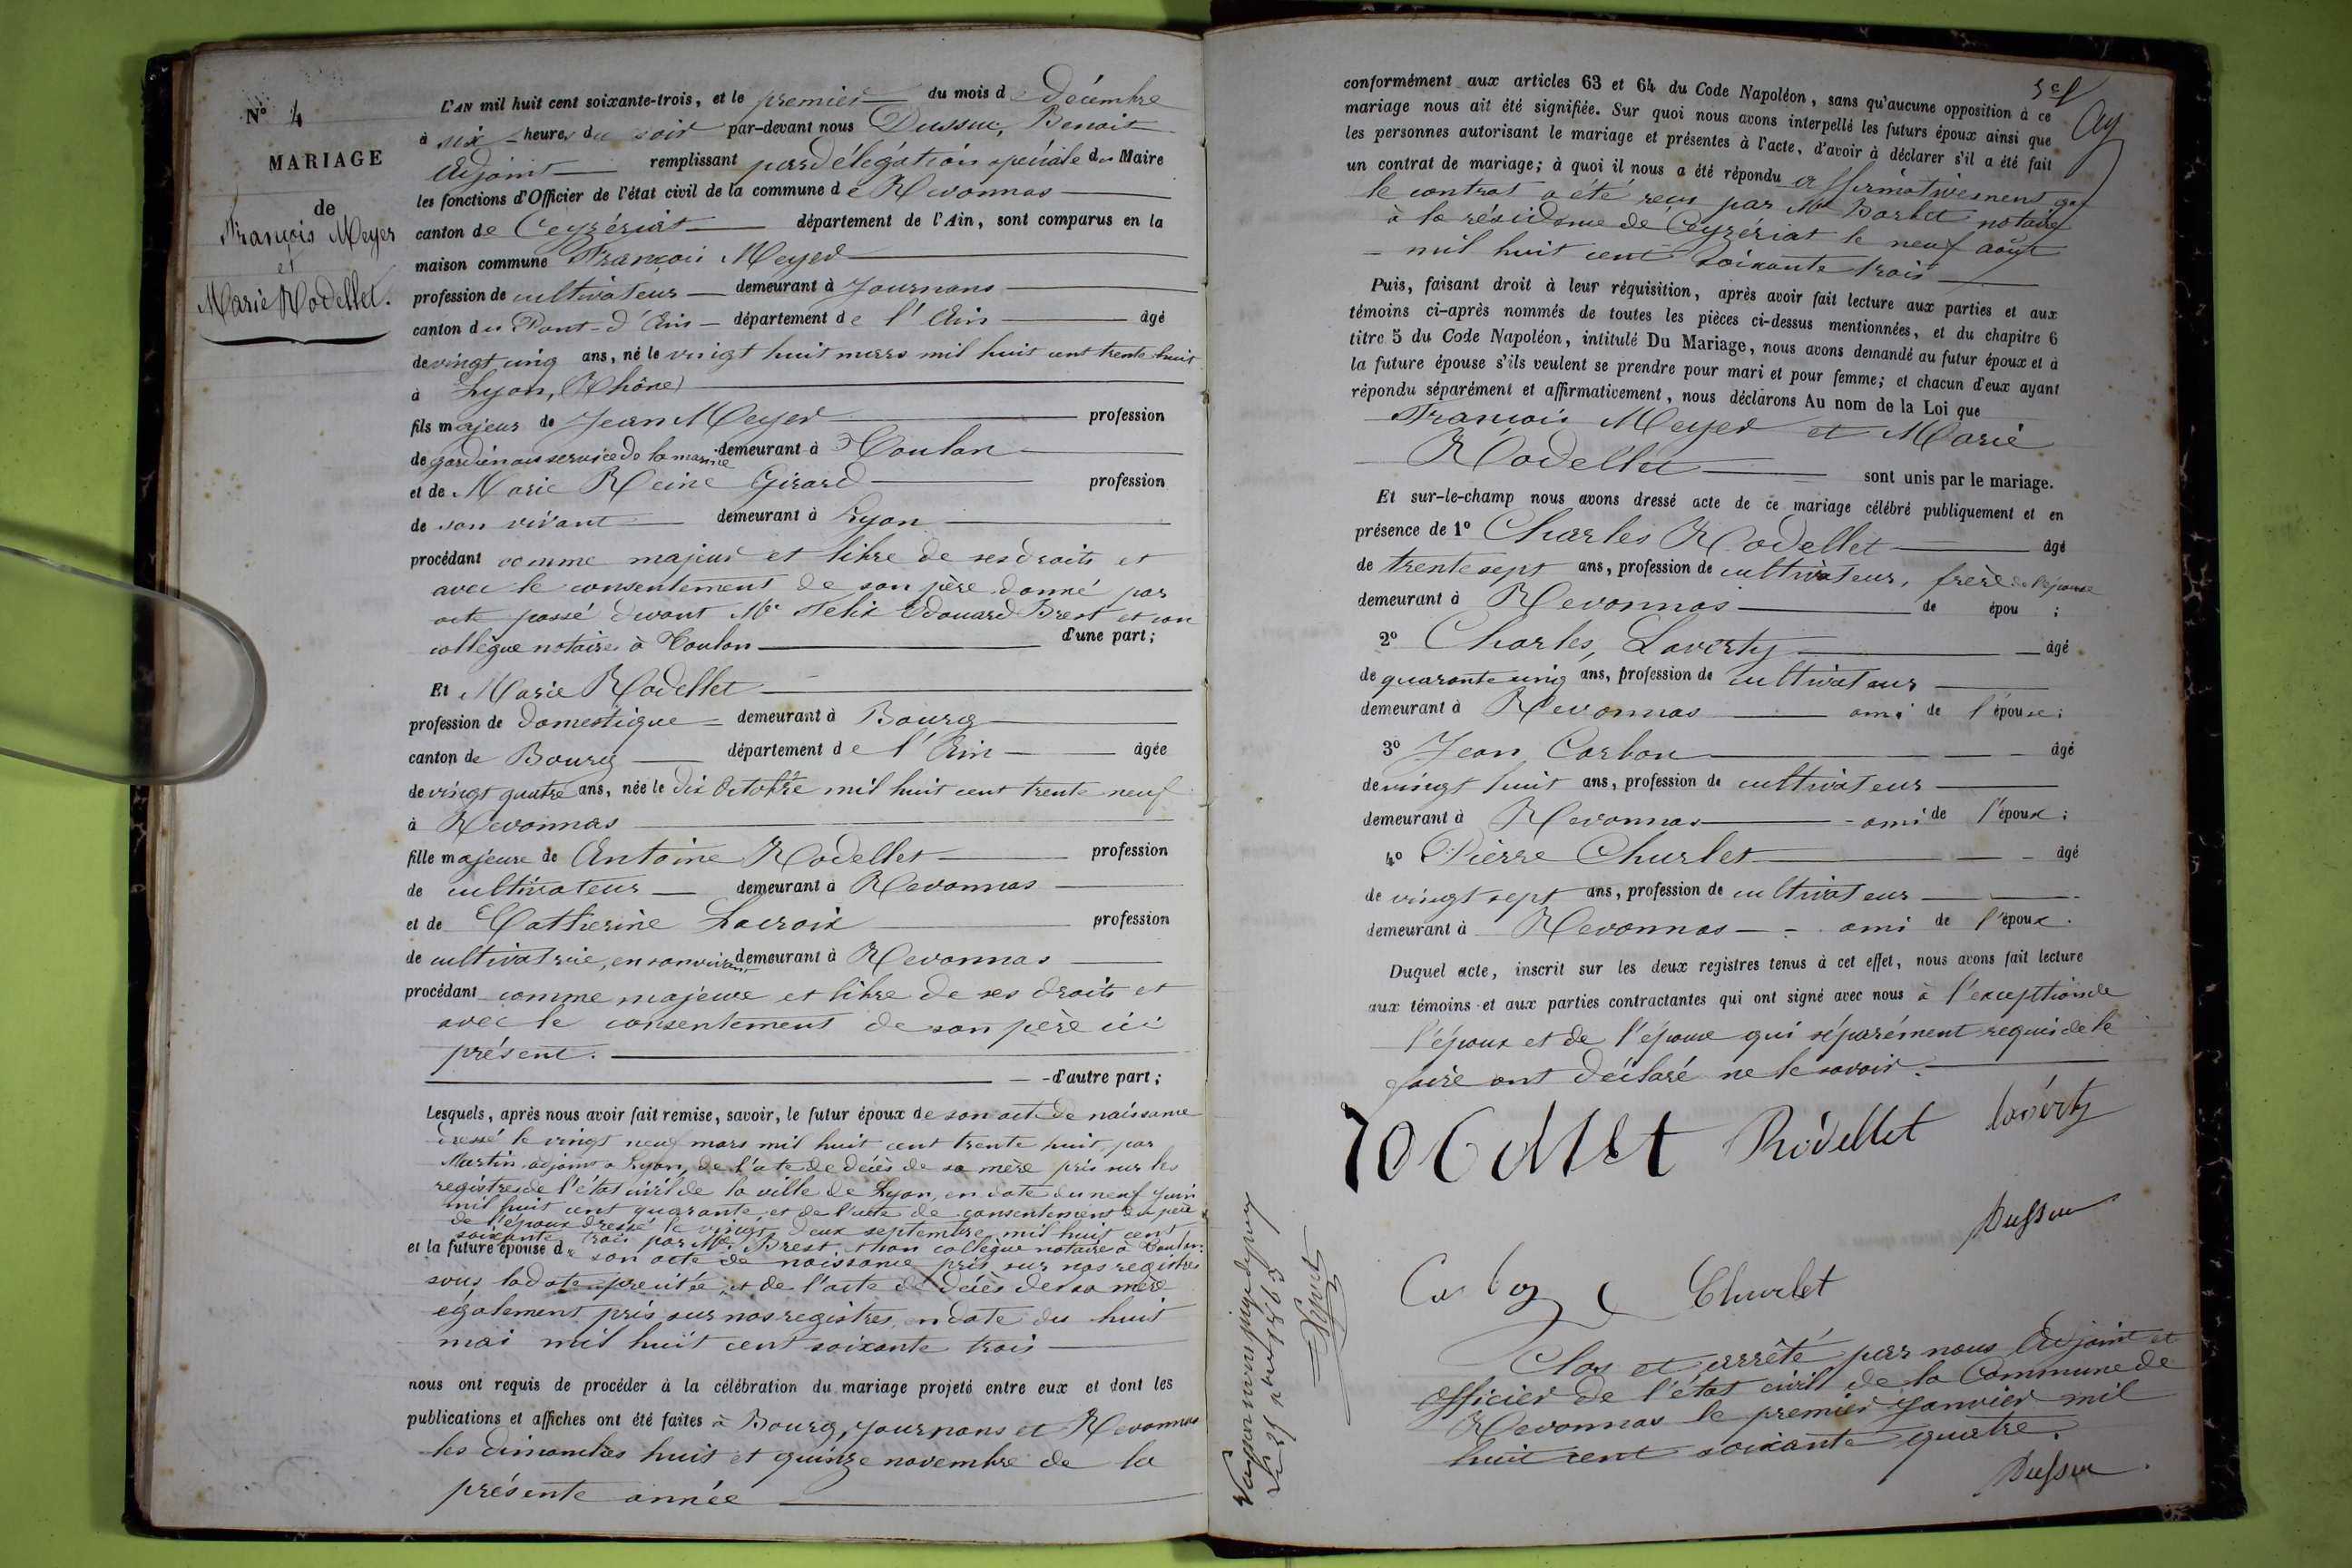 N° 4
MARIAGE
de
François Meyer
et
Marie Rodellet.
L'AN mil huit cent soixante-trois, et le premier du mois de Décembre
à six heures du soir par-devant nous Dussuc, Benoit
Adjoint remplissant par délégation spéciale du Maire
les fonctions d'Officier de l'état civil de la commune de Revonnas
canton de Ceyzériat département de l'Ain, sont comparus en la
maison commune François Meyer
profession de cultivateur demeurant à Journans
canton du Pont-d'Ain département de l'Ain âgé
de vingt cinq ans, né le vingt huit mars mil huit cent trente huit
à Lyon, (Rhône)
fils majeur de Jean Meyer profession
de gardien au service de la marine demeurant à Toulon
et de Marie Reine Girard profession
de son vivant demeurant à Lyon
procédant comme majeur et libre de ses droits et
avec le consentement de son père donné par
acte passé devant Me Felix Edouard Brest et son
collègue notaires à Toulon d'une part;
Et Marie Rodellet
profession de domestique demeurant à Bourg
canton de Bourg département de l'Ain âgée
de vingt quatre ans, née le dix octobre mil huit cent trente neuf
à Revonnas
fille majeure de Antoine Rodellet profession
de cultivateur demeurant à Revonnas
et de Catherine Lacroix profession
de cultivatrice, en son vivant demeurant à Revonnas
procédant comme majeure et libre de ses droits et
avec le consentement de son père ici
présent.
d'autre part;
Lesquels, après nous avoir fait remise, savoir, le futur époux de son acte de naissance
dressé le vingt neuf mars mil huit cent trente huit par
Martin adjoint a Lyon, de l'acte de décès de sa mère pris sur les
registres de l'état civil de la ville de Lyon, en date du neuf juin
mil huit cent quarante et de l'acte de consentement du père
de l'époux dressé le vingt deux septembre mil huit cent
soixante trois par Me Brest et son collègue notaire à Toulon.
et la future épouse de son acte de naissance pris sur nos registres
sous la date précitée, et de l'acte de décès de sa mère
également pris sur nos registres en date du huit
mai mil huit cent soixante trois
nous ont requis de procéder à la célébration du mariage projeté entre eux et dont les
publications et affiches ont été faites à Bourg, Journans et Revonnas
les dimanches huit et quinze novembre de la
présente année
conformément aux articles 63 et 64 du Code Napoléon, sans qu'aucune opposition à ce
mariage nous ait été signifiée. Sur quoi nous avons interpellé les futurs époux ainsi que
les personnes autorisant le mariage et présentes à l'acte, d'avoir à déclarer s'il a été fait
un contrat de mariage; à quoi il nous a été répondu affirmativement que
le contrat a été reçu par Me Barbet notaire
à la résidence de Ceyzériat le neuf août
mil huit cent soixante trois
Puis, faisant droit à leur réquisition, après avoir fait lecture aux parties et aux
témoins ci-après nommés de toutes les pièces ci-dessus mentionnées, et du chapitre 6
titre 5 du Code Napoléon, intitulé Du Mariage, nous avons demandé au futur époux et à
la future épouse s'ils veulent se prendre pour mari et pour femme; et chacun d'eux ayant
répondu séparément et affirmativement, nous déclarons Au nom de la Loi que
François Meyer et Marie
Rodellet sont unis par le mariage.
Et sur-le-champ nous avons dressé acte de ce mariage célébré publiquement et en
présence de 1° Charles Rodellet âgé
de trente sept ans, profession de cultivateur, frère de l'épouse
demeurant à Revonnas de épou ;
2° Charles, Laverty âgé
de quarante cinq ans, profession de cultivateur
demeurant à Revonnas ami de l'épouse;
3° Jean Carbon âgé
de vingt huit ans, profession de cultivateur
demeurant à Revonnas ami de l'époux;
4° Pierre Churlet âgé
de vingt sept ans, profession de cultivateur
demeurant à Revonnas ami de l'époux.
Duquel acte, inscrit sur les deux registres tenus à cet effet, nous avons fait lecture
aux témoins et aux parties contractantes qui ont signé avec nous à l'exception de
l'époux et de l'épouse qui séparément requis de le
faire ont déclaré ne le savoir.
Rodellet laverty
Dussuc
Churlet
Clos et arrêté par nous Adjoint et
officier de l'état civil de la Commune de
Revonnas le premier Janvier mil
huit cent soixante quatre.
Dussuc